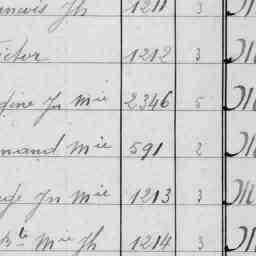 ancois Jh 1211 3
ictor 1212 3
gine Jn Mie 2346 5
mand Mie 591 2
Jn Mie 1213 3
Bte Mie Jh 1214 3